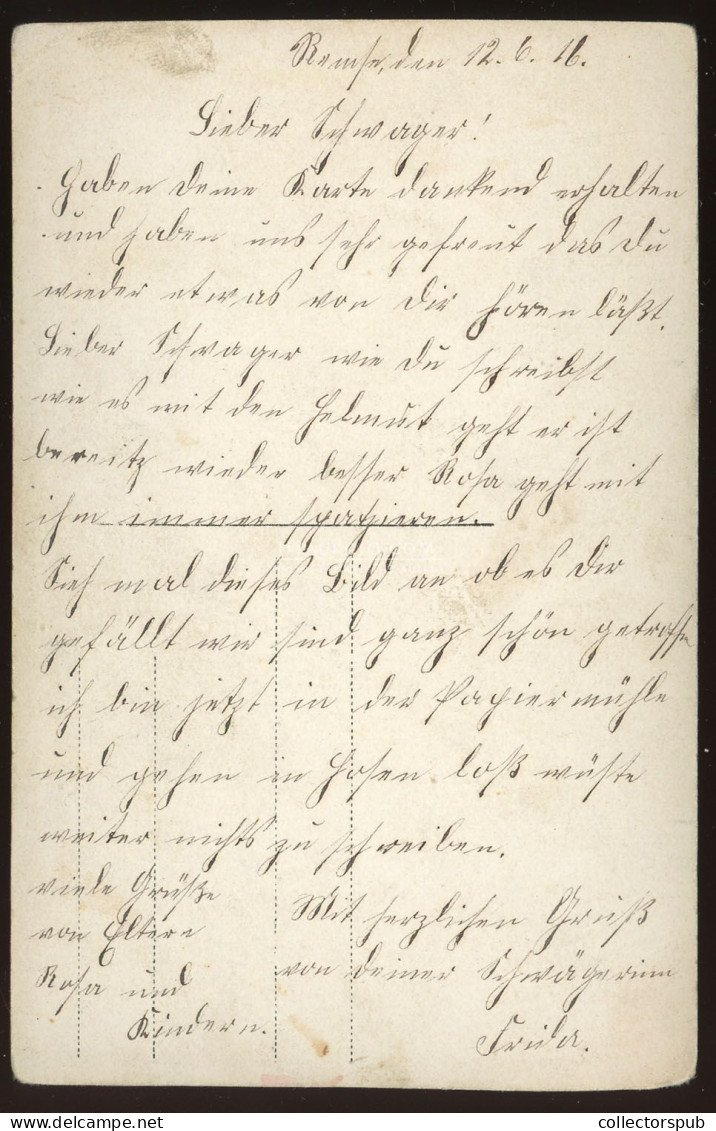 Remse, den 12.6.16.
Lieber Schwager!
Haben deine Karte dankend erhalten
und haben uns sehr gefreut das du
wieder etwas von dir hören läßt.
Lieber Schwager wie du schreibst
wie es mit den Helmut geht er ist
bereitz wieder besser Rosa geht mit
ihm immer spatzieren.
Sieh mal dieses Bild an ob es dir
gefällt wir sind ganz schön getroffen
ich bin jetzt in der Papiermühle
und gehen in Hosen loß wüste
weiter nichts zu schreiben.
viele Grüße
von Eltern
Rosa und
Kindern.
Mit herzlichen Gruß
von deiner Schwägerinn
Frida.
collectorspub